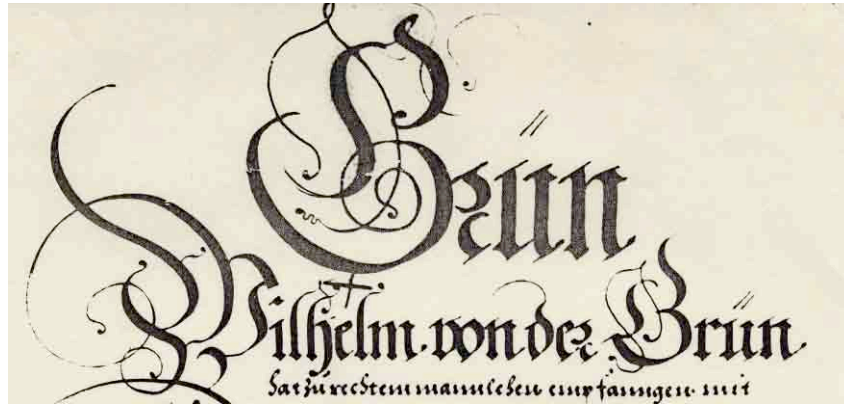 Grün
Wilhelm · von der Grün
hat zu rechtem mannlehen empfanngen mit